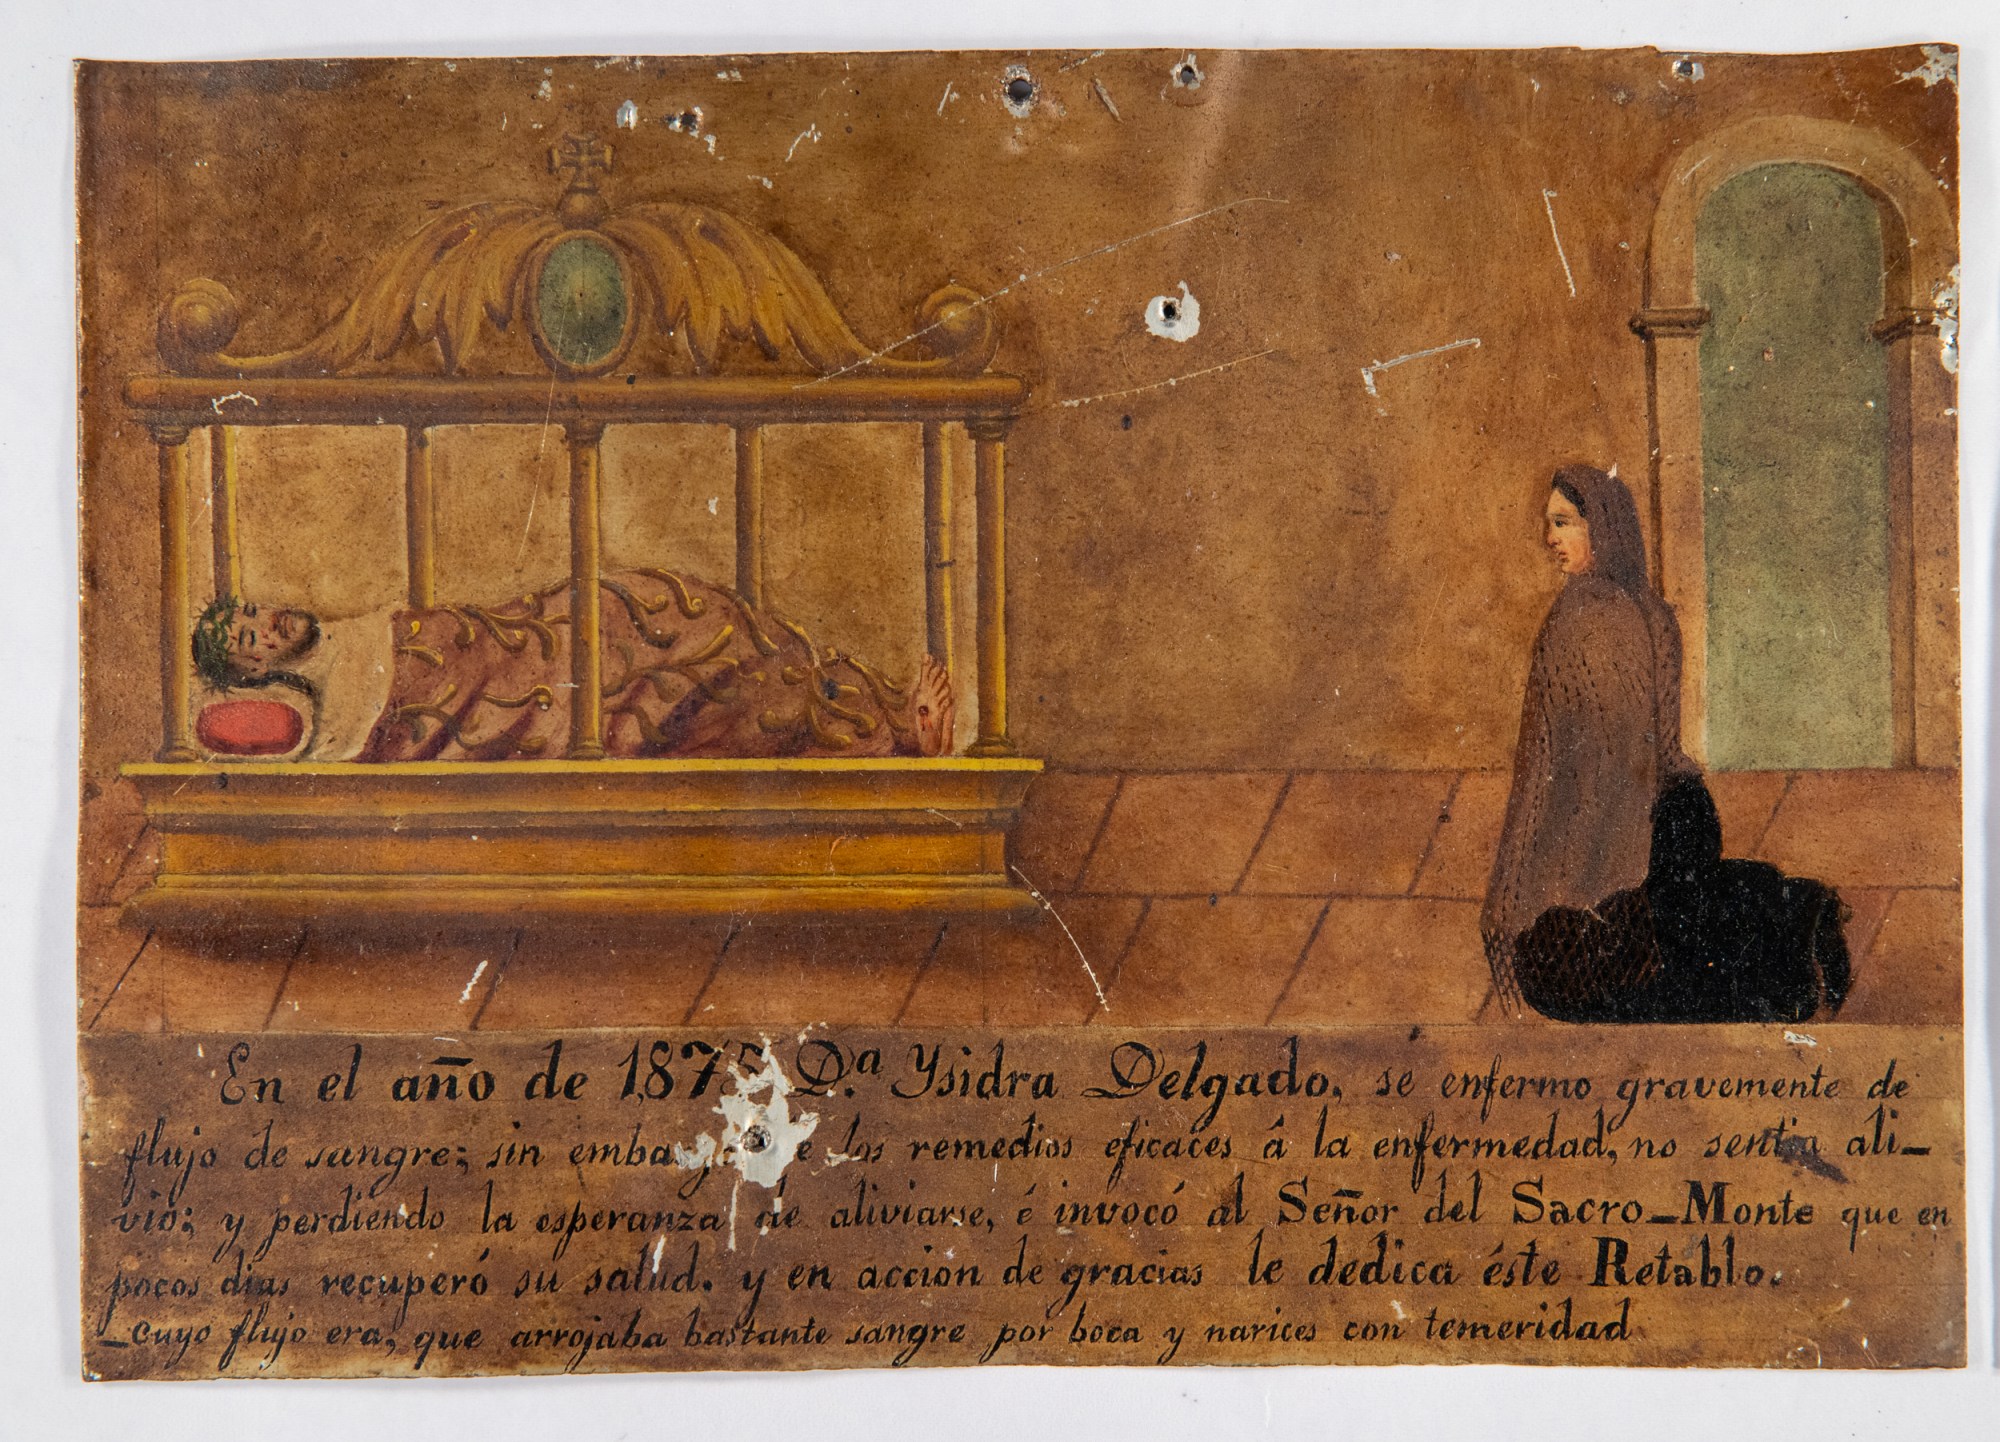 En el año de 187 D.ª Ysidra Delgado, se enfermo gravemente de
flujo de sangre; sin embargo los remedios eficaces â la enfermedad, no sentia ali-
vio; y perdiendo la esperanza de aliviarse, é invocó al Señor del Sacro-Monte que en
pocos dias recuperó su salud. y en accion de gracias le dedica éste Retablo.
-cuyo flujo era, que arrojaba bastante sangre por boca y narices con temeridad